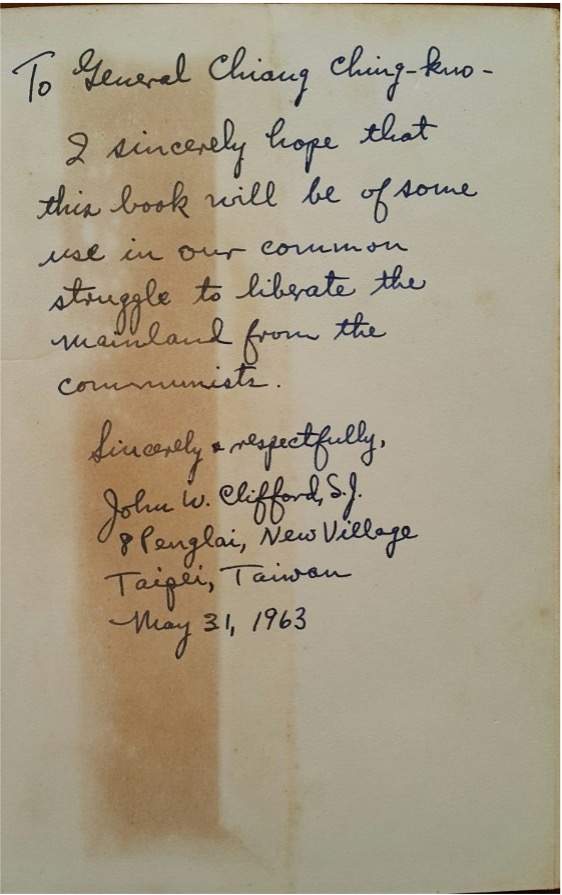 To General Chiang Ching-kuo-
I sincerely hope that
this book will be of some
use in our common
struggle to liberate the
mainland from the
communists.
Sincerely & respectfully,
John W. Clifford, S.J.
8 Penglai, New Village
Taipei, Taiwan
May 31, 1963